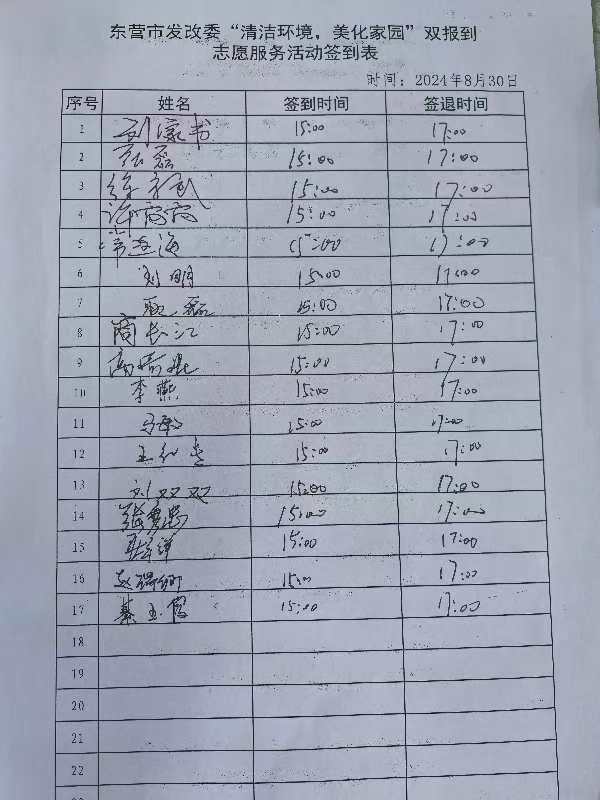 东营市发改委“清洁环境，美化家园”双报到
志愿服务活动签到表
时间：2024年8月30日
序号 姓名 签到时间 签退时间
1 15:00 17:00
2 张磊 15:00 17:00
3 15:00 17:00
4 许商商 15:00 17:00
5 15:00 17:00
6 刘明 15:00 17:00
7 磊 15:00 17:00
8 商长江 15:00 17:00
9 高 15:00 17:00
10 李燕 15:00 17:00
11 马 15:00 17:00
12 王红 15:00 17:00
13 刘双双 15:00 17:00
14 张 15:00 17:00
15 15:00 17:00
16 赵 15:00 17:00
17 綦玉 15:00 17:00
18
19
20
21
22